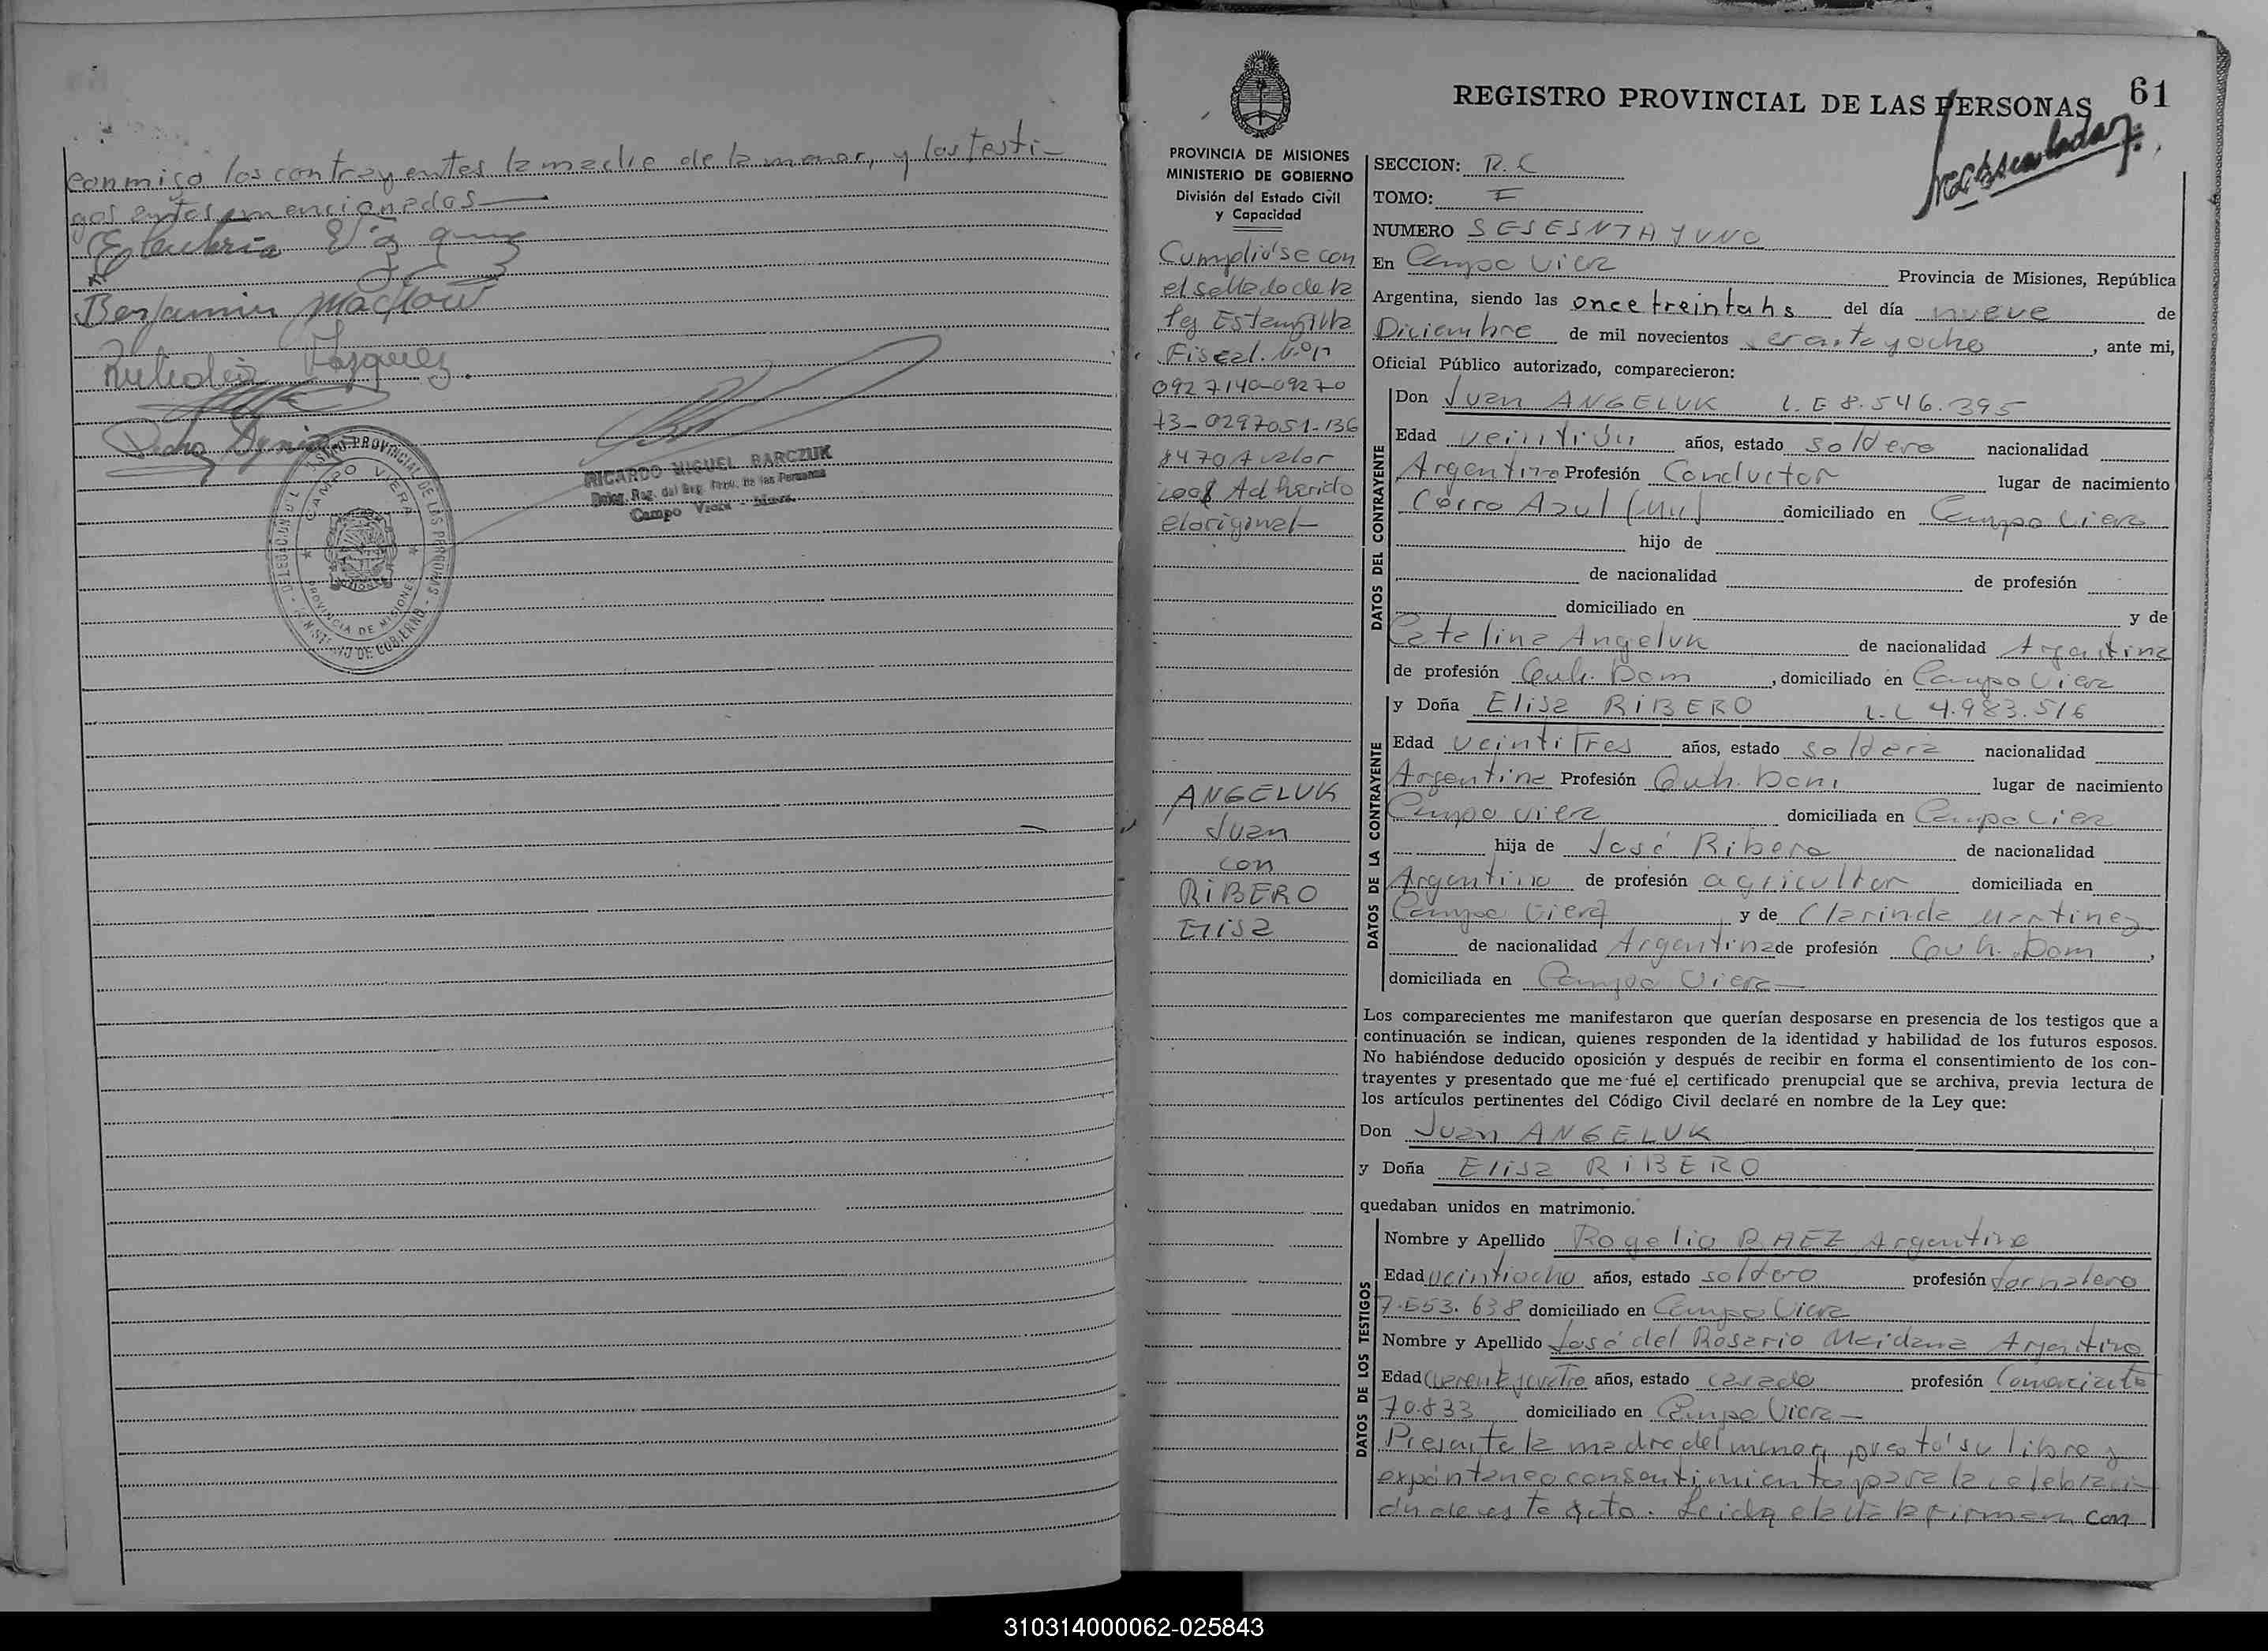 conmigo los contrayentes la madre de la menor, y los testi-
gos antes mencionados
Benjamin
Vazquez.
Pedro
DELEGACION
REGISTRO PROVINCIAL DE LAS PERSONAS
CAMPO VIERA
PROVINCIA DE MISIONES
MINISTERIO DE GOBIERNO
RICARDO MIGUEL BARCZUK
Deleg. Reg. del Reg. Prov. de las Personas
Campo Viera - Mnes.
61
REGISTRO PROVINCIAL DE LAS PERSONAS
PROVINCIA DE MISIONES
MINISTERIO DE GOBIERNO
División del Estado Civil
y Capacidad
Cumplióse con
el sellado de la
ley Estampilla
Fiscal. Nº
0927140-09270
73-0297051-136
8470A valor
Adherido
el original-
ANGELUK
Juan
con
RIBERO
Elisa
SECCION: R. C
TOMO: I
NUMERO SESESNTA Y UNO
En Campo Viera Provincia de Misiones, República
Argentina, siendo las once treinta hs del día nueve de
Diciembre de mil novecientos sesenta y ocho, ante mi,
Oficial Público autorizado, comparecieron:
DATOS DEL CONTRAYENTE
Don Juan ANGELUK L. E 8.546.395
Edad años, estado soldero nacionalidad
Argentino Profesión Conductor lugar de nacimiento
Cerro Azul domiciliado en Campo Viera
hijo de
de nacionalidad de profesión
domiciliado en y de
Catalina Angeluk de nacionalidad Argentina
de profesión Quh. Dom, domiciliado en Campo Viera
DATOS DE LA CONTRAYENTE
y Doña Elisa RIBERO L. C 4.983.516
Edad veintitres años, estado soldera nacionalidad
Argentina Profesión Quh. Dom lugar de nacimiento
Campo Viera domiciliada en Campo Viera
hija de José Ribero de nacionalidad
Argentino de profesión agricultor domiciliada en
Campo Viera y de Clarinda Martinez
de nacionalidad Argentina de profesión Quh. Dom,
domiciliada en Campo Viera-
Los comparecientes me manifestaron que querían desposarse en presencia de los testigos que a
continuación se indican, quienes responden de la identidad y habilidad de los futuros esposos.
No habiéndose deducido oposición y después de recibir en forma el consentimiento de los con-
trayentes y presentado que me fué el certificado prenupcial que se archiva, previa lectura de
los artículos pertinentes del Código Civil declaré en nombre de la Ley que:
Don Juan ANGELUK
y Doña Elisa RIBERO
quedaban unidos en matrimonio.
DATOS DE LOS TESTIGOS
Nombre y Apellido Rogelio Argentino
Edad veintiocho años, estado soldero profesión Jornalero
7.553.638 domiciliado en Campo Viera
Nombre y Apellido José del Rosario Meidana Argentino
Edad cuarenta y cuatro años, estado casado profesión Comerciante
70.833 domiciliado en Campo Viera-
Presente la madre del menor, presto' su libre y
expontaneo consentimiento para la celebraci
ón de este acto. Leida el acta la firman con
310314000062-025843